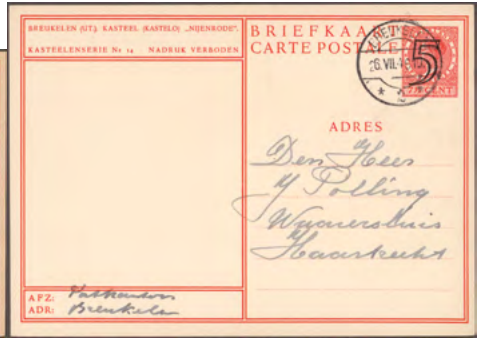 BREUKELEN (UT.): KASTEEL (KASTELO) „NIJENRODE".
KASTEELENSERIE Nr 14 NADRUK VERBODEN
BRIEFKAA
CARTE POSTALE
5
26.VII.4
2
CENT
ADRES
Den Heer
J Polling
Haastrecht
AFZ: Postkantoor
ADR: Breukelen